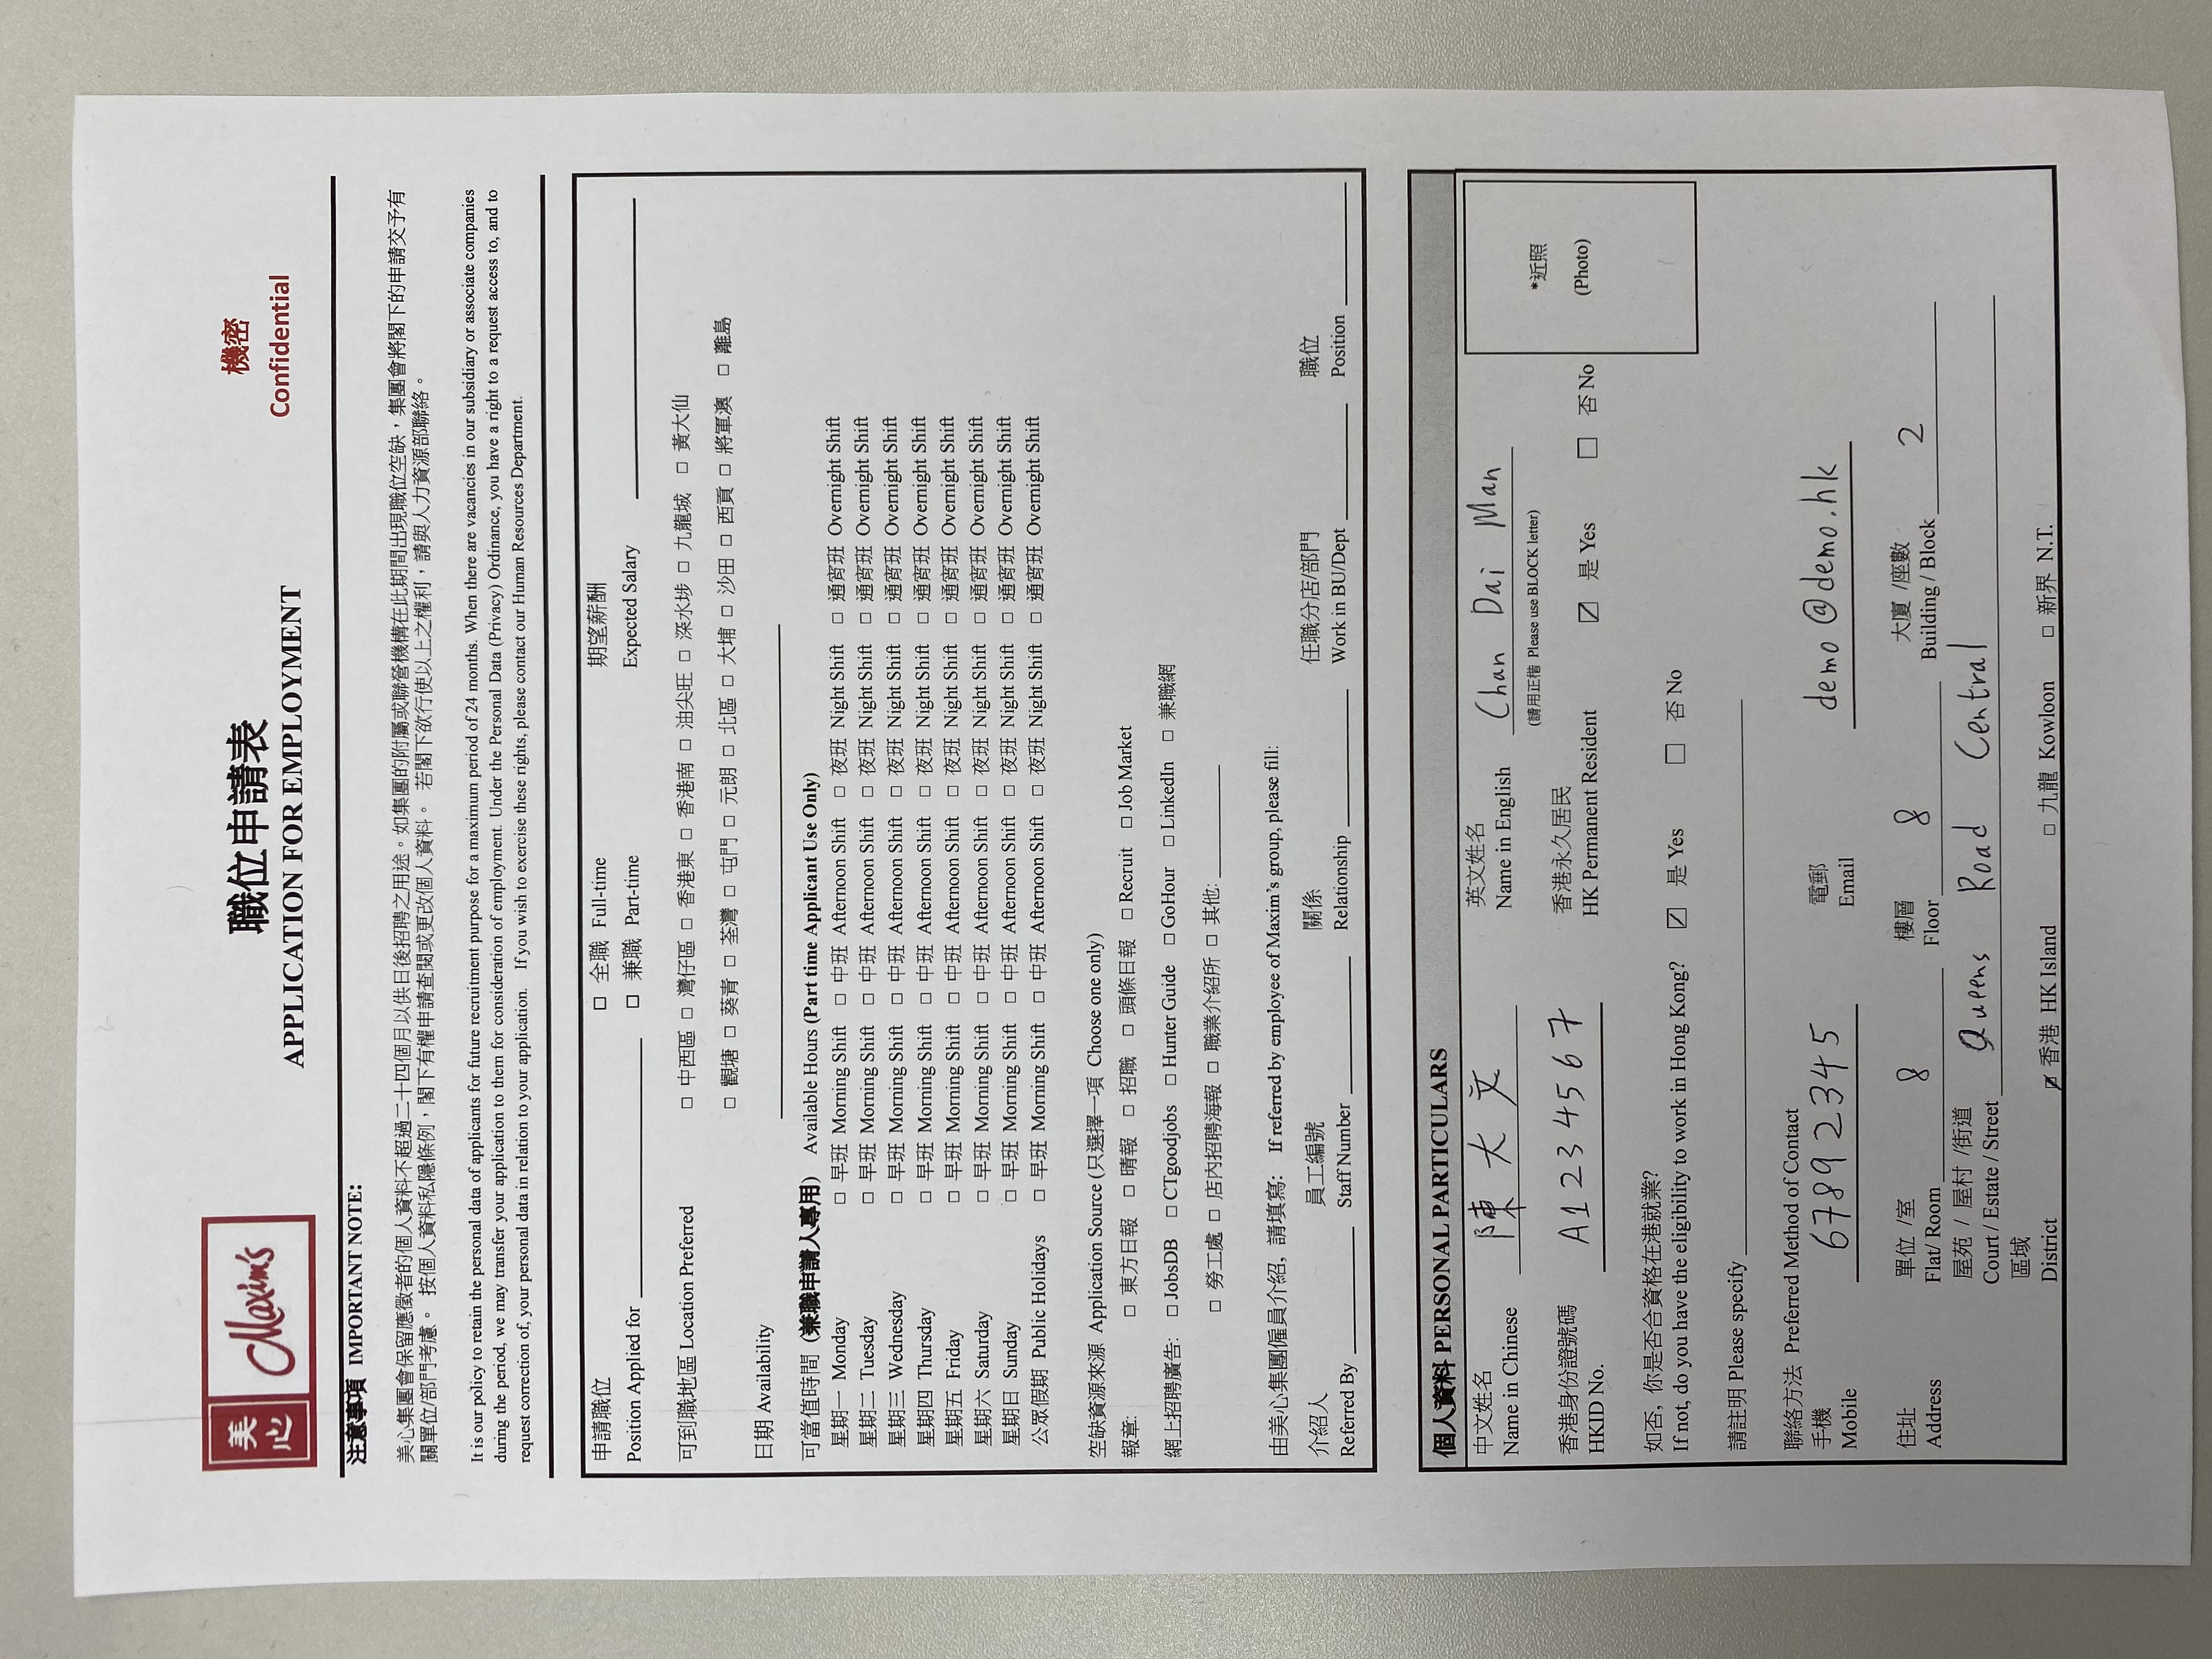 美心 Maxim's
職位申請表
APPLICATION FOR EMPLOYMENT
機密
Confidential
注意事項 IMPORTANT NOTE:
美心集團會保留應徵者的個人資料不超過二十四個月以供日後招聘之用途。如集團的附屬或聯營機構在此期間出現職位空缺，集團會將閣下的申請交予有
關單位/部門考慮。 按個人資料私隱條例，閣下有權申請查閱或更改個人資料。 若閣下欲行使以上之權利，請與人力資源部聯絡。
It is our policy to retain the personal data of applicants for future recruitment purpose for a maximum period of 24 months. When there are vacancies in our subsidiary or associate companies
during the period, we may transfer your application to them for consideration of employment. Under the Personal Data (Privacy) Ordinance, you have a right to a request access to, and to
request correction of, your personal data in relation to your application. If you wish to exercise these rights, please contact our Human Resources Department.
申請職位 □ 全職 Full-time 期望薪酬
Position Applied for ________ □ 兼職 Part-time Expected Salary ________
可到職地區 Location Preferred □ 中西區 □ 灣仔區 □ 香港東 □ 香港南 □ 油尖旺 □ 深水埗 □ 九龍城 □ 黃大仙
□ 觀塘 □ 葵青 □ 荃灣 □ 屯門 □ 元朗 □ 北區 □ 大埔 □ 沙田 □ 西貢 □ 將軍澳 □ 離島
日期 Availability ________
可當值時間 (兼職申請人專用) Available Hours (Part time Applicant Use Only)
星期一 Monday □ 早班 Morning Shift □ 中班 Afternoon Shift □ 夜班 Night Shift □ 通宵班 Overnight Shift
星期二 Tuesday □ 早班 Morning Shift □ 中班 Afternoon Shift □ 夜班 Night Shift □ 通宵班 Overnight Shift
星期三 Wednesday □ 早班 Morning Shift □ 中班 Afternoon Shift □ 夜班 Night Shift □ 通宵班 Overnight Shift
星期四 Thursday □ 早班 Morning Shift □ 中班 Afternoon Shift □ 夜班 Night Shift □ 通宵班 Overnight Shift
星期五 Friday □ 早班 Morning Shift □ 中班 Afternoon Shift □ 夜班 Night Shift □ 通宵班 Overnight Shift
星期六 Saturday □ 早班 Morning Shift □ 中班 Afternoon Shift □ 夜班 Night Shift □ 通宵班 Overnight Shift
星期日 Sunday □ 早班 Morning Shift □ 中班 Afternoon Shift □ 夜班 Night Shift □ 通宵班 Overnight Shift
公眾假期 Public Holidays □ 早班 Morning Shift □ 中班 Afternoon Shift □ 夜班 Night Shift □ 通宵班 Overnight Shift
空缺資源來源 Application Source (只選擇一項 Choose one only)
報章: □ 東方日報 □ 晴報 □ 招職 □ 頭條日報 □ Recruit □ Job Market
網上招聘廣告: □ JobsDB □ CTgoodjobs □ Hunter Guide □ GoHour □ LinkedIn □ 兼職網
□ 勞工處 □ 店內招聘海報 □ 職業介紹所 □ 其他: ________
由美心集團僱員介紹, 請填寫: If referred by employee of Maxim's group, please fill:
介紹人 員工編號 關係 任職分店/部門 職位
Referred By ________ Staff Number ________ Relationship ________ Work in BU/Dept ________ Position ________
個人資料 PERSONAL PARTICULARS
中文姓名 英文姓名
Name in Chinese 陳大文 Name in English Chan Dai Man
(請用正楷 Please use BLOCK letter)
*近照
(Photo)
香港身份證號碼 香港永久居民
HKID No. A1234567 HK Permanent Resident ☑ 是 Yes □ 否 No
如否, 你是否合資格在港就業?
If not, do you have the eligibility to work in Hong Kong? ☑ 是 Yes □ 否 No
請註明 Please specify ________
聯絡方法 Preferred Method of Contact
手機 電郵
Mobile 67892345 Email demo@demo.hk
住址 單位 /室 樓層 大廈 /座數
Address Flat/ Room 8 Floor 8 Building / Block 2
屋苑 / 屋村 /街道
Court / Estate / Street Queens Road Central
區域
District ☑ 香港 HK Island □ 九龍 Kowloon □ 新界 N.T.